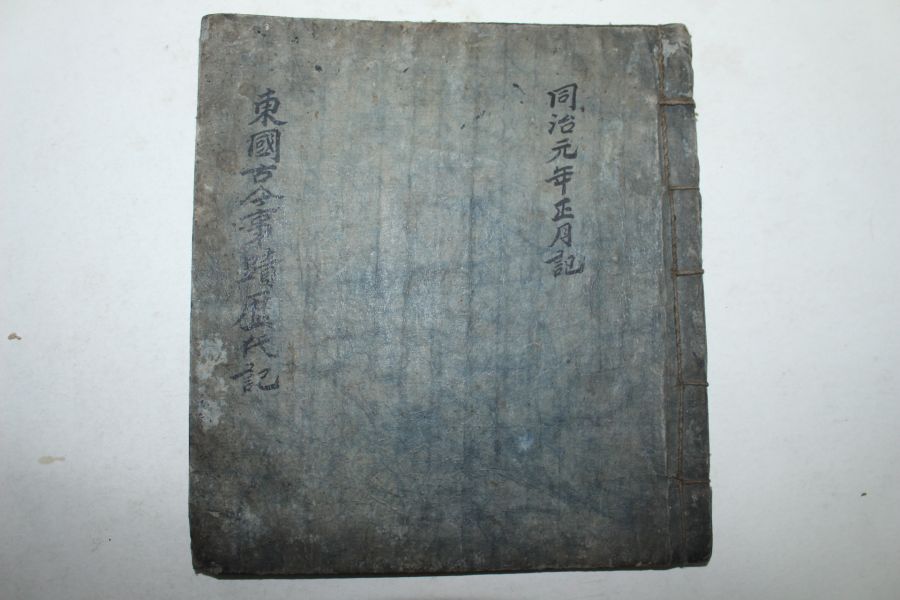 同治元年正月記
東國古今事蹟歷代記